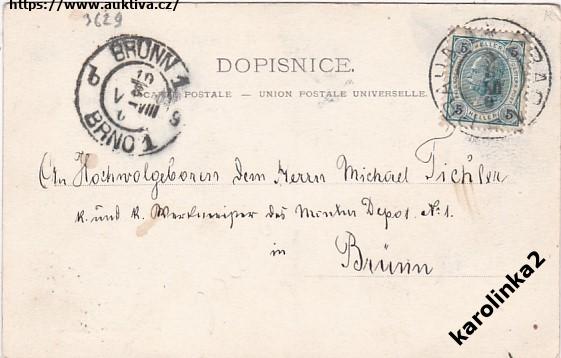 https://www.auktiva.cz/
3629
BRÜNN 1
BRNO 1
DOPISNICE.
CARTE POSTALE – UNION POSTALE UNIVERSELLE.
5 5
HELLER
5 5
HELLER
An Hochwolgeboren dem Herrn Michael Tichler
k. und k. Werkmeister des Montur Depot No 1.
in
Brünn
karolinka2